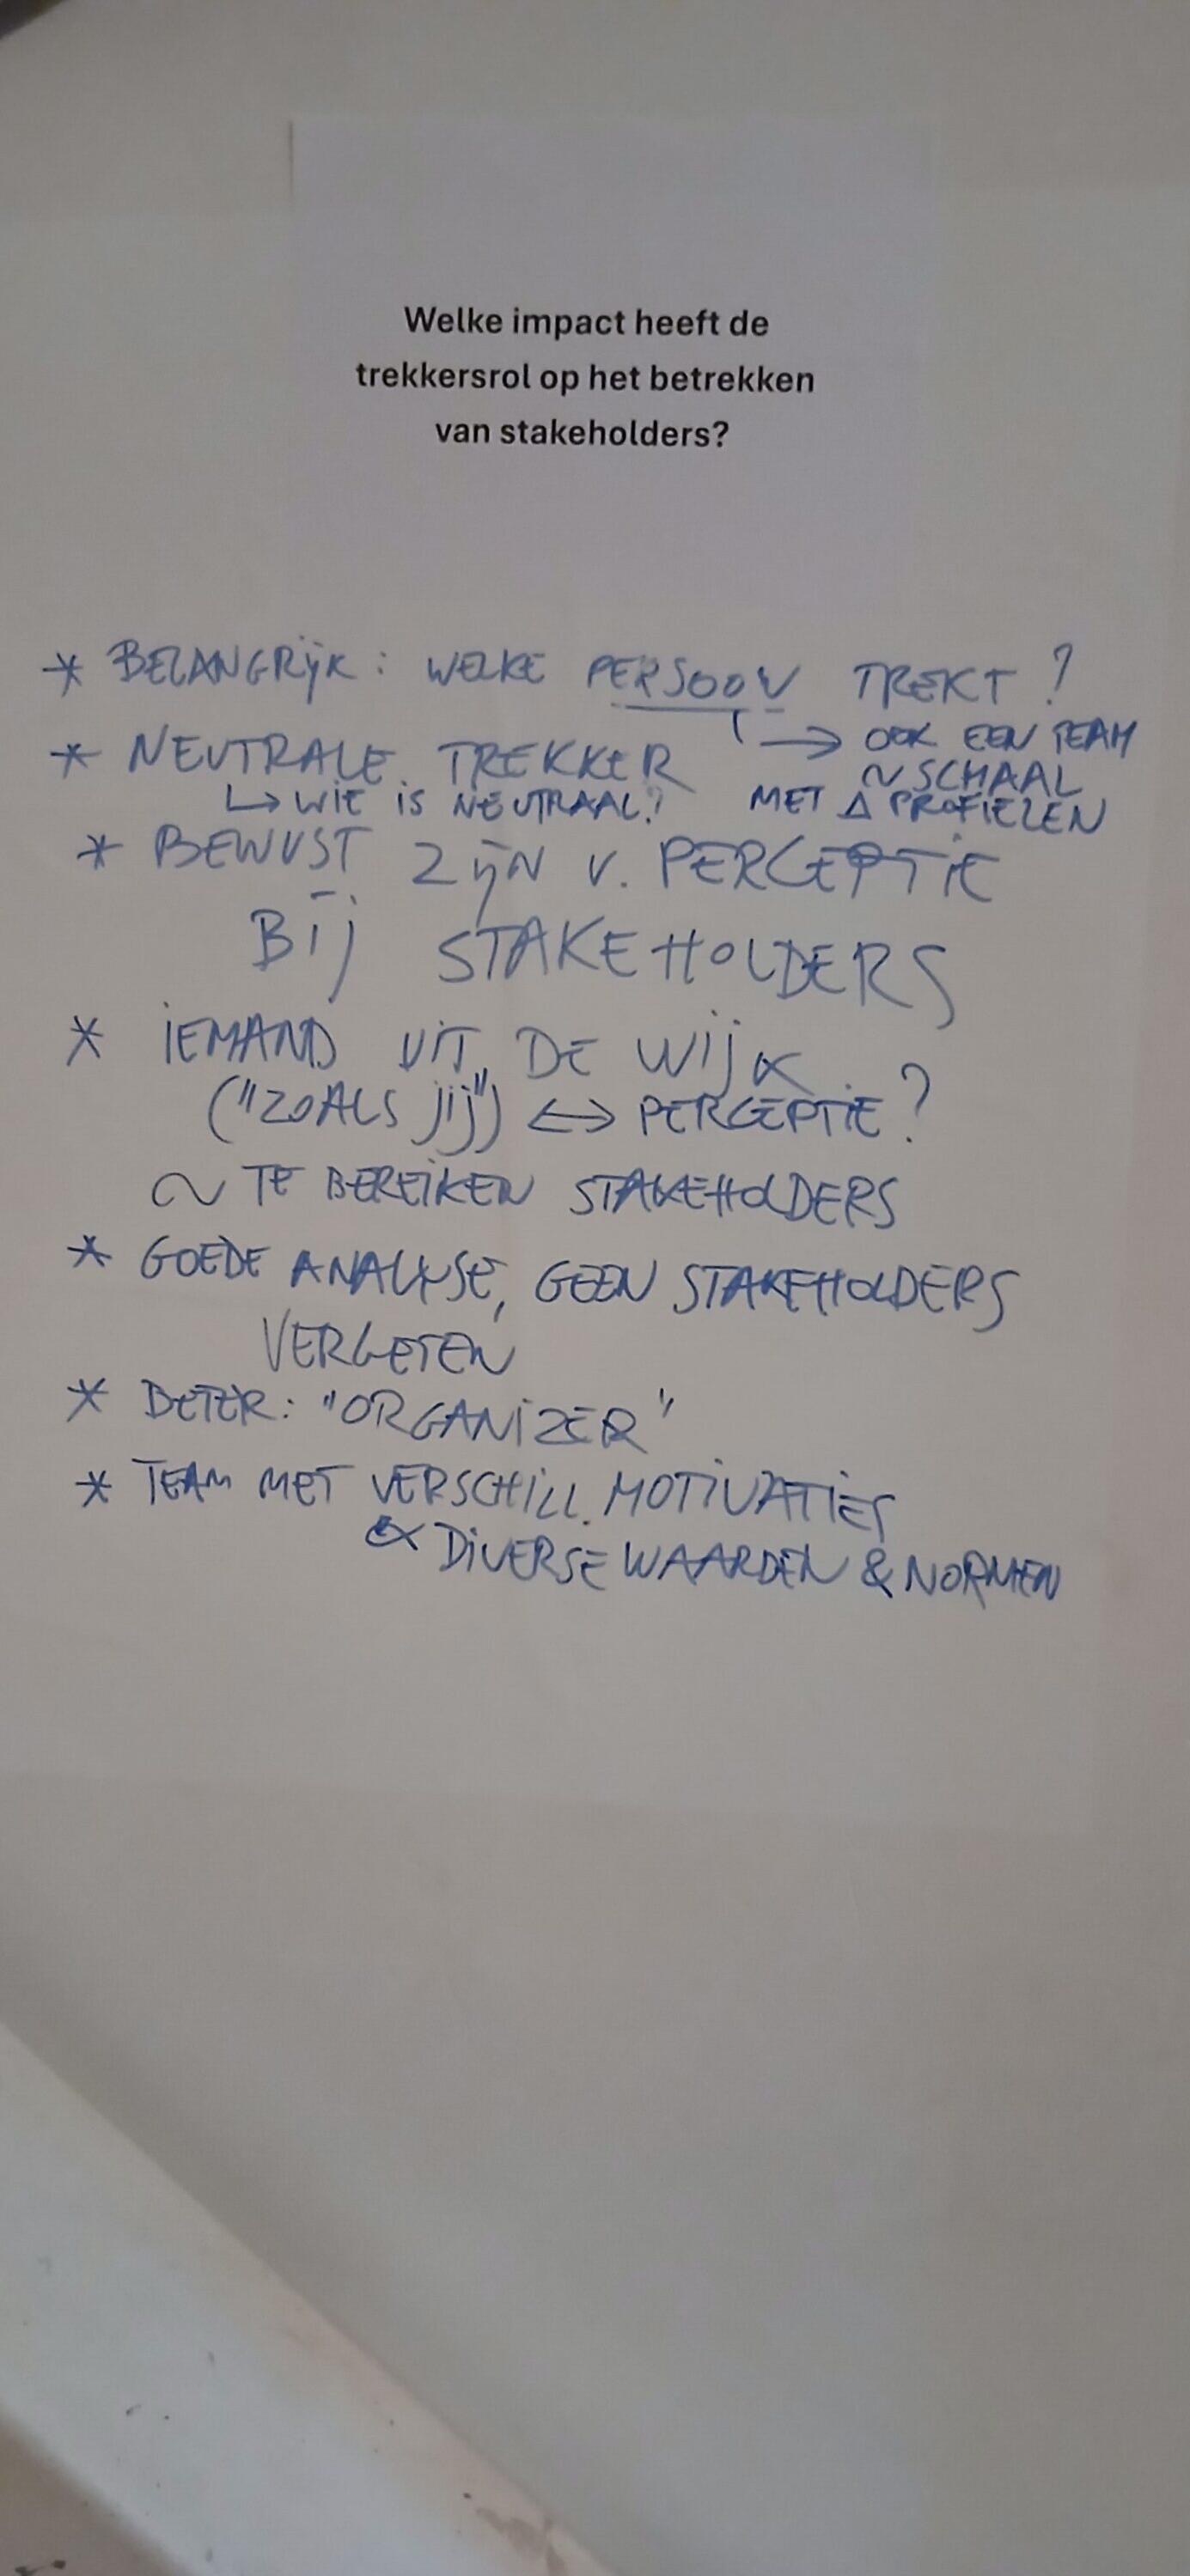 Welke impact heeft de
trekkersrol op het betrekken
van stakeholders?
* BELANGRIJK: WELKE PERSOON TREKT?
→ OOK EEN TEAM
~ SCHAAL
MET Δ PROFIELEN
* NEUTRALE TREKKER
↳ WIE IS NEUTRAAL?
* BEWUST ZIJN V. PERCEPTIE
BIJ STAKEHOLDERS
* IEMAND UIT DE WIJK
("ZOALS JIJ") ↔ PERCEPTIE?
~ TE BEREIKEN STAKEHOLDERS
* GOEDE ANALYSE, GEEN STAKEHOLDERS
VERGETEN
* BETER: "ORGANIZER"
* TEAM MET VERSCHILL. MOTIVATIES
& DIVERSE WAARDEN & NORMEN